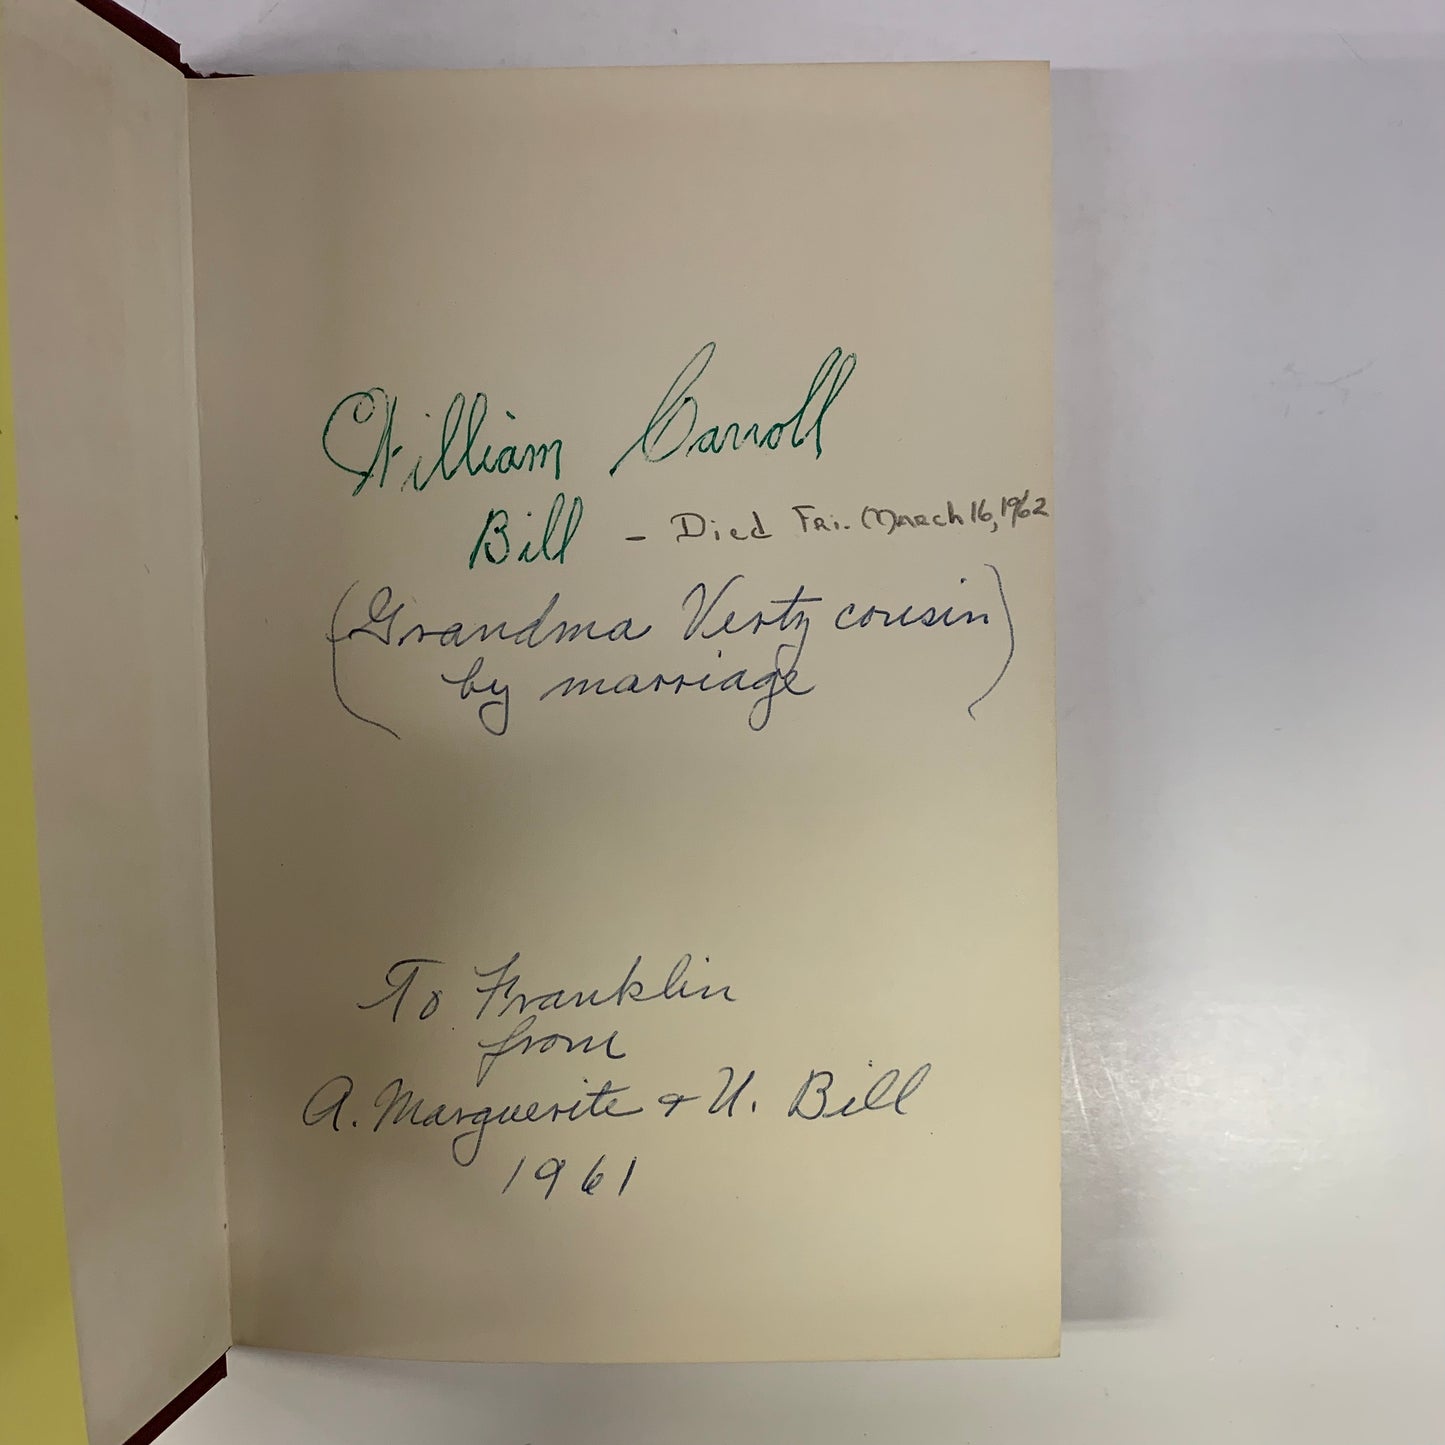 William Carroll
Bill - Died Fri. March 16, 1962
(Grandma Vertz cousin
by marriage)
To Franklin
from
A. Marguerite & U. Bill
1961